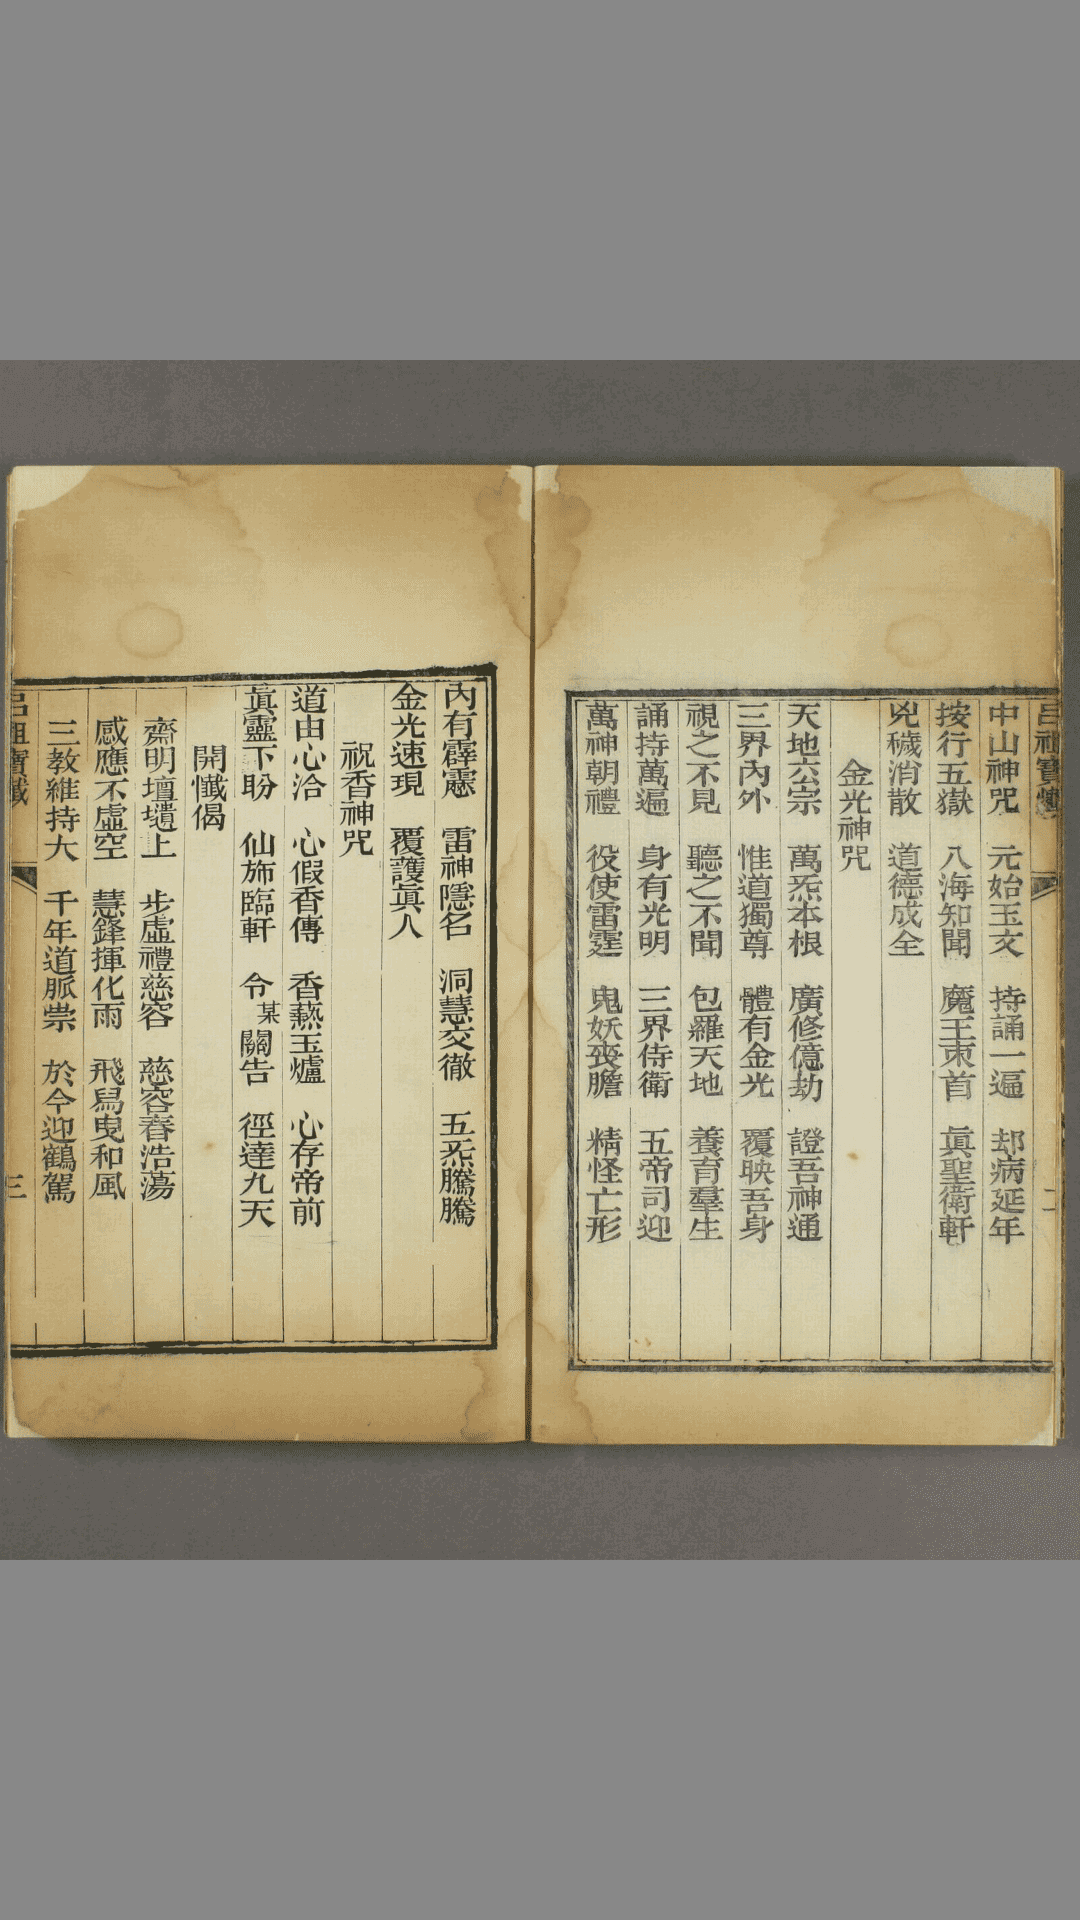 呂祖寶懺
二
中山神咒 元始玉文 持誦一遍 却病延年
按行五嶽 八海知聞 魔王束首 眞聖衛軒
兇穢消散 道德成全
金光神咒
天地六宗 萬炁本根 廣修億劫 證吾神通
三界內外 惟道獨尊 體有金光 覆映吾身
視之不見 聽之不聞 包羅天地 養育羣生
誦持萬遍 身有光明 三界侍衛 五帝司迎
萬神朝禮 役使雷霆 鬼妖喪膽 精怪亡形
內有霹靂 雷神隱名 洞慧交徹 五炁騰騰
金光速現 覆護眞人
祝香神咒
道由心洽 心假香傳 香爇玉爐 心存帝前
眞靈下盼 仙斾臨軒 令某關告 徑達九天
開懺偈
齋明壇壝上 步虛禮慈容 慈容春浩蕩
感應不虛空 慧鋒揮化雨 飛舃曳和風
三教維持大 千年道脈崇 於今迎鶴駕
呂祖寶懺
三